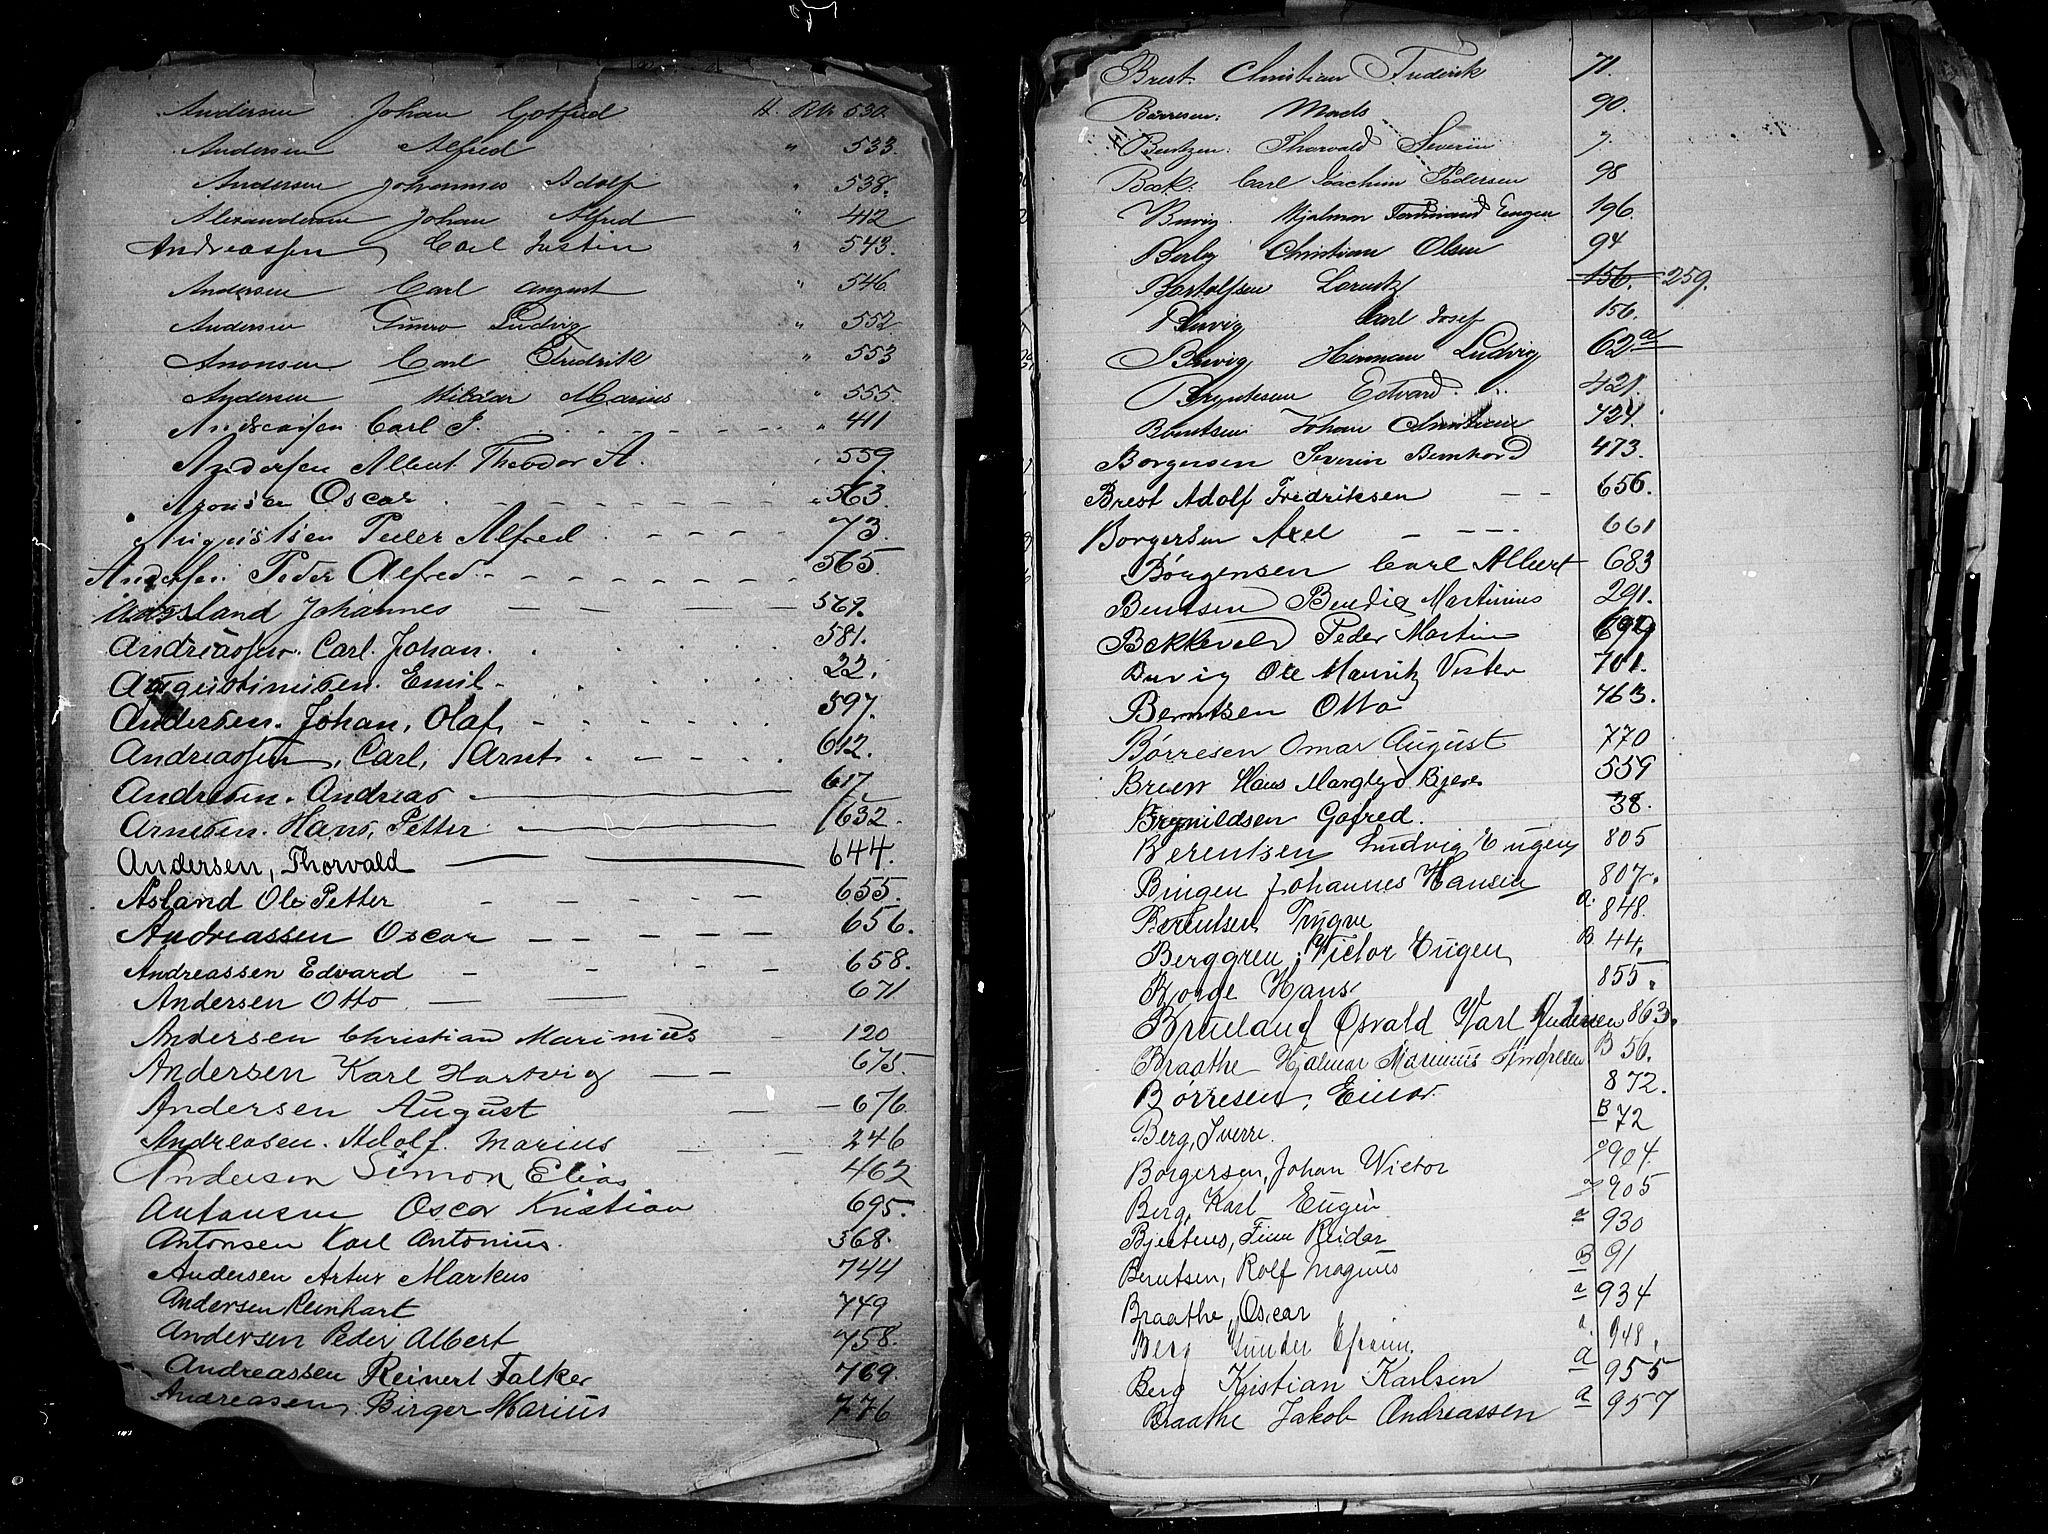 Andersen Johan Gotfred H. Rk. 530.
Andersen Alfred " 533.
Andersen Johannes Adolf " 538.
Alexandersen Johan Alfred " 412
Andreassen Carl Justin " 543.
Andersen Carl August 546
Andersen Gunvo Ludvig " 552
Aronsen Carl Fredrik " 553
Andersen Hildar Marius " 555.
Andreassen Carl J. " 411
Andersen Albert Theodor A. 559.
Aronsen Oscar 563.
Augustsen Peder Alfred 73.
Andersen Peder Alfred 565.
Aasland Johannes 569.
Andreassen. Carl. Johan. 581.
Augustinusen. Emil 22.
Andersen. Johan, Olaf, 597.
Andreassen, Carl, Arnt 612.
Andresen. Andreas 617.
Arnesen. Hans, Petter 632.
Andersen, Thorvald 644.
Åsland Ole Petter 655.
Andreassen Oscar 656.
Andreassen Edvard 658.
Andersen Otto 671
Andersen Christian Marinius 120
Andersen Karl Hartvig 675.
Andersen August 676.
Andreasen. Adolf. Marius 246
Andersen Simon Elias 462
Antonsen Oscar Kristian 695.
Antonsen Karl Antonius. 368.
Andersen Artur Markus 744
Andersen Reinhart 749
Andersen Peder Albert 758.
Andreassen Reinert Falker 769.
Andreasen Birger Marius 776
Brest Christian Frederik 71.
Børresen: Mads 90.
Bentzen: Thorvald Severin 7.
Bock: Carl Joachim Pedersen 98
Burvig Hjalmar Ferdinand Eugen 196.
Berby Christian Olsen 94
Bartolfsen Lorentz 156. 259.
Burvig Carl Josef 156.
Burvig Herman Ludvig 62a
Bryntesen Edvard 421.
Berntsen Johan Christian 424.
Borgersen Severin Bernhard 473.
Brest Adolf Fredriksen 656.
Borgersen Axel 661
Børgensen Carl Albert 683
Bentsen Bendix Martinius 291.
Bekkevold Peder Martin
Burvig Ole Mauritz Vester 701.
Berntsen Otto 763.
Børresen Omar August 770
Bruun Hans Margbyd Bjerre 559
Brynildsen Gofred. 38.
Berentsen Ludvig Eugen 805
Bingen Johannes Hansen 807.
Berentsen Trygve a. 848.
Berggren, Victor Eugen B. 44.
Borge Hans 855.
Bruland Osvald Karl Andersen 863.
Braathe Hjalmar Marinius Andresen B 56.
Børresen, Einar. 872.
Berg, Sverre. B 72
Borgersen, Johan Victor a 904.
Berg, Karl Eugen a 905
Bjertnes, Finn Reidar a 930
Berntsen, Rolf Magnus B 91
Braathe, Oscar a 934
Berg Gunder Efraim. a. 948.
Berg Kristian Karlsen a 955
Braathe Jakob Andreassen a 957